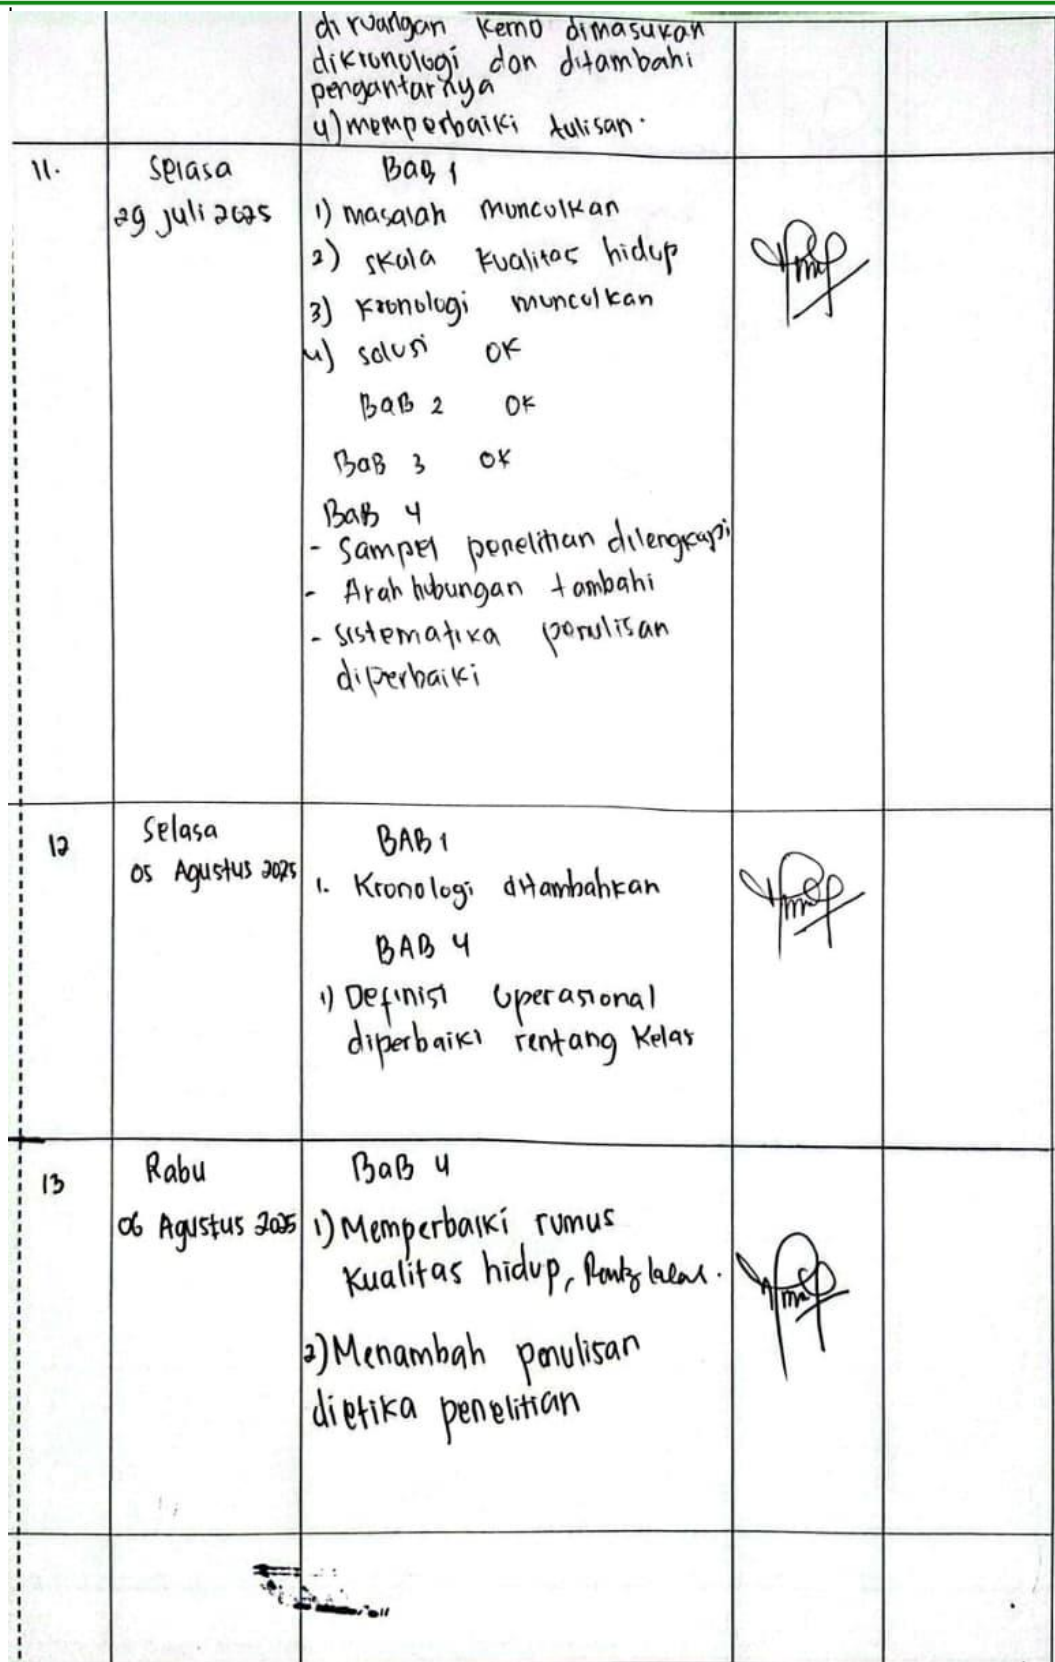 diruangan kemo dimasukan
dikronologi dan ditambahi
pengantarnya
4) memperbaiki tulisan.
11.
Selasa
29 juli 2025
BaB 1
1) masalah munculkan
2) skala kualitas hidup
3) kronologi munculkan
4) solusi OK
BaB 2 OK
BaB 3 OK
BaB 4
- Sampel penelitian dilengkapi
- Arah hubungan tambahi
- sistematika penulisan
diperbaiki
12
Selasa
05 Agustus 2025
BAB 1
1. Kronologi ditambahkan
BAB 4
1) Definisi Operasional
diperbaiki rentang Kelas
13
Rabu
06 Agustus 2025
BaB 4
1) Memperbaiki rumus
kualitas hidup,
2) Menambah penulisan
dietika penelitian